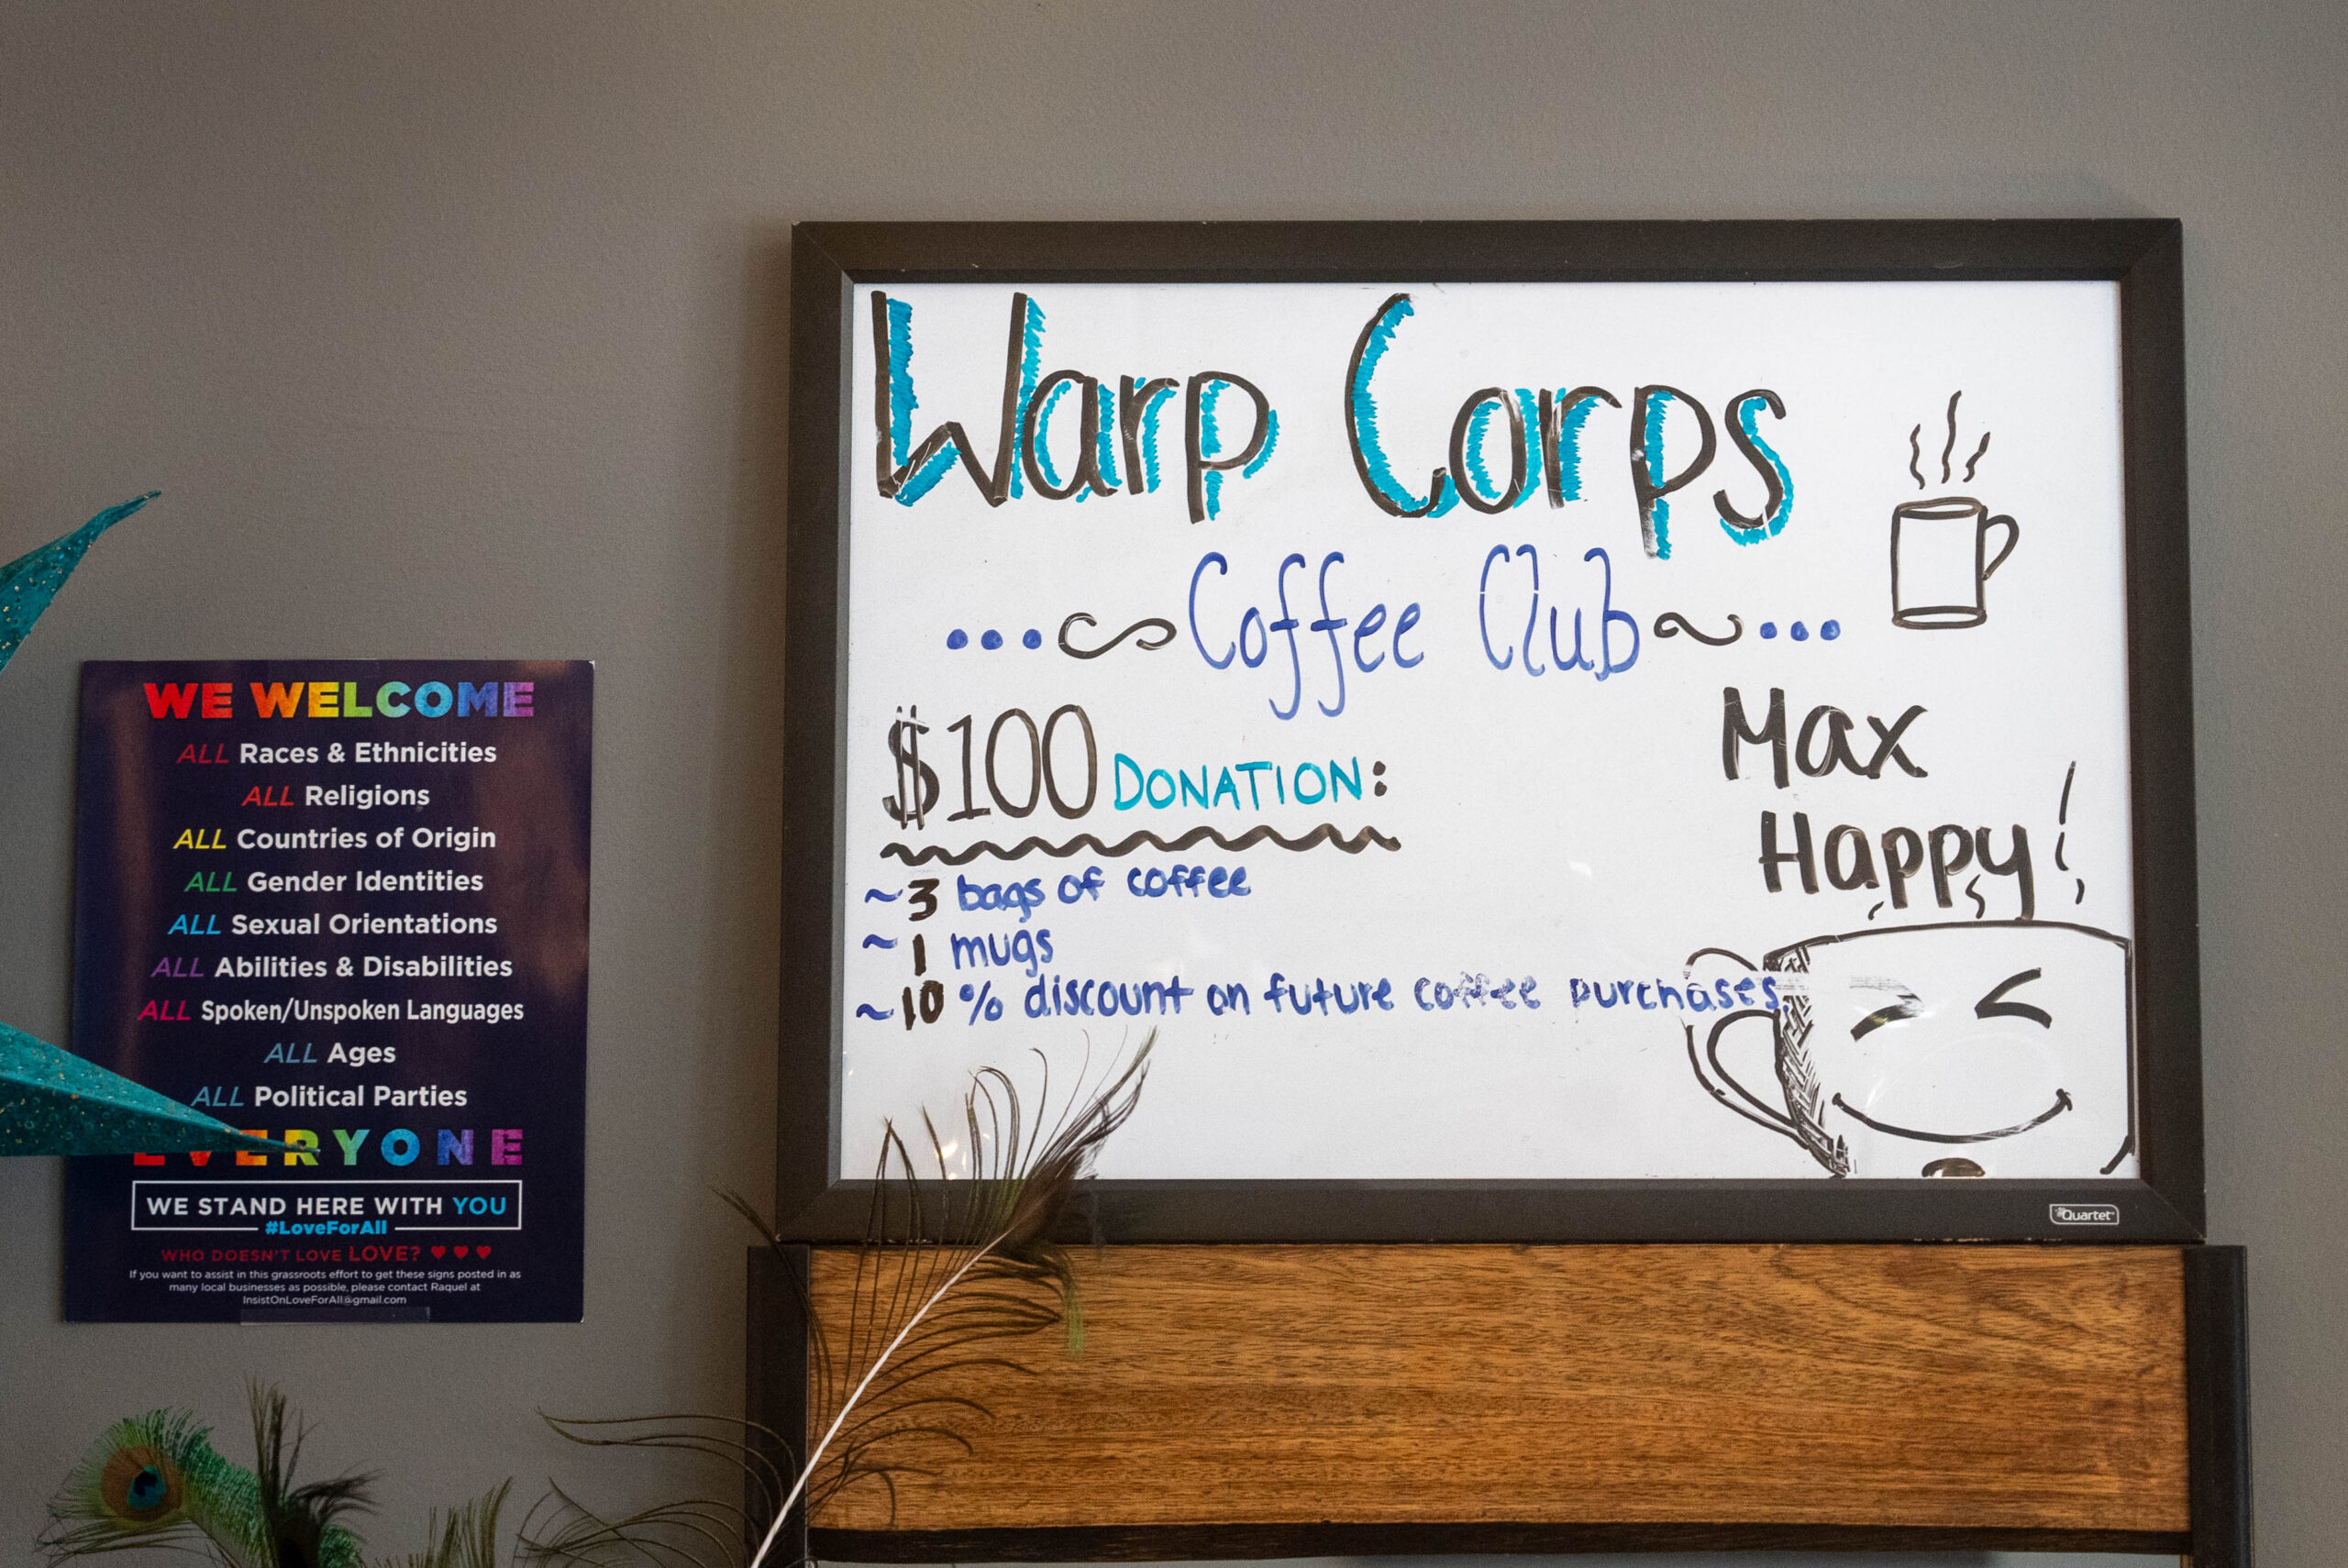 WE WELCOME
ALL Races & Ethnicities
ALL Religions
ALL Countries of Origin
ALL Gender Identities
ALL Sexual Orientations
ALL Abilities & Disabilities
ALL Spoken/Unspoken Languages
ALL Ages
ALL Political Parties
EVERYONE
WE STAND HERE WITH YOU
#LoveForAll
WHO DOESN'T LOVE LOVE? ♥ ♥ ♥
If you want to assist in this grassroots effort to get these signs posted in as
many local businesses as possible, please contact Raquel at
InsistOnLoveForAll@gmail.com
Warp Corps
...~Coffee Club~...
$100 DONATION:
~3 bags of coffee
~1 mugs
~10% discount on future coffee purchases.
Max
Happy!
Quartet